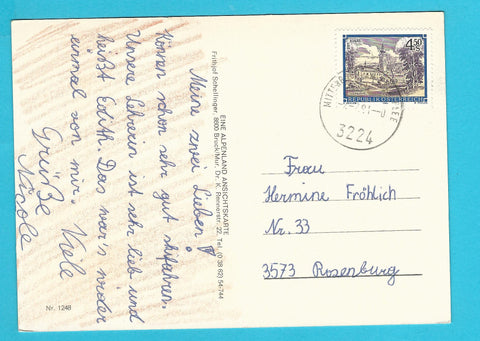 Meine zwei Lieben!
können schon sehr gut skifahren.
Unsere Lehrerin ist sehr lieb und
heißt Edith. Das war's wieder
einmal von mir. Viele
Grüße
Nicole
EINE ALPENLAND ANSICHTSKARTE
Frithjof Schellinger, 8600 Bruck/Mur, Dr. K. Rennerstr. 22, Tel. (0 38 62) 54-744
Nr. 1248
4.50
REPUBLIK ÖSTERREICH
3224
Frau
Hermine Fröhlich
Nr. 33
3573 Rosenburg